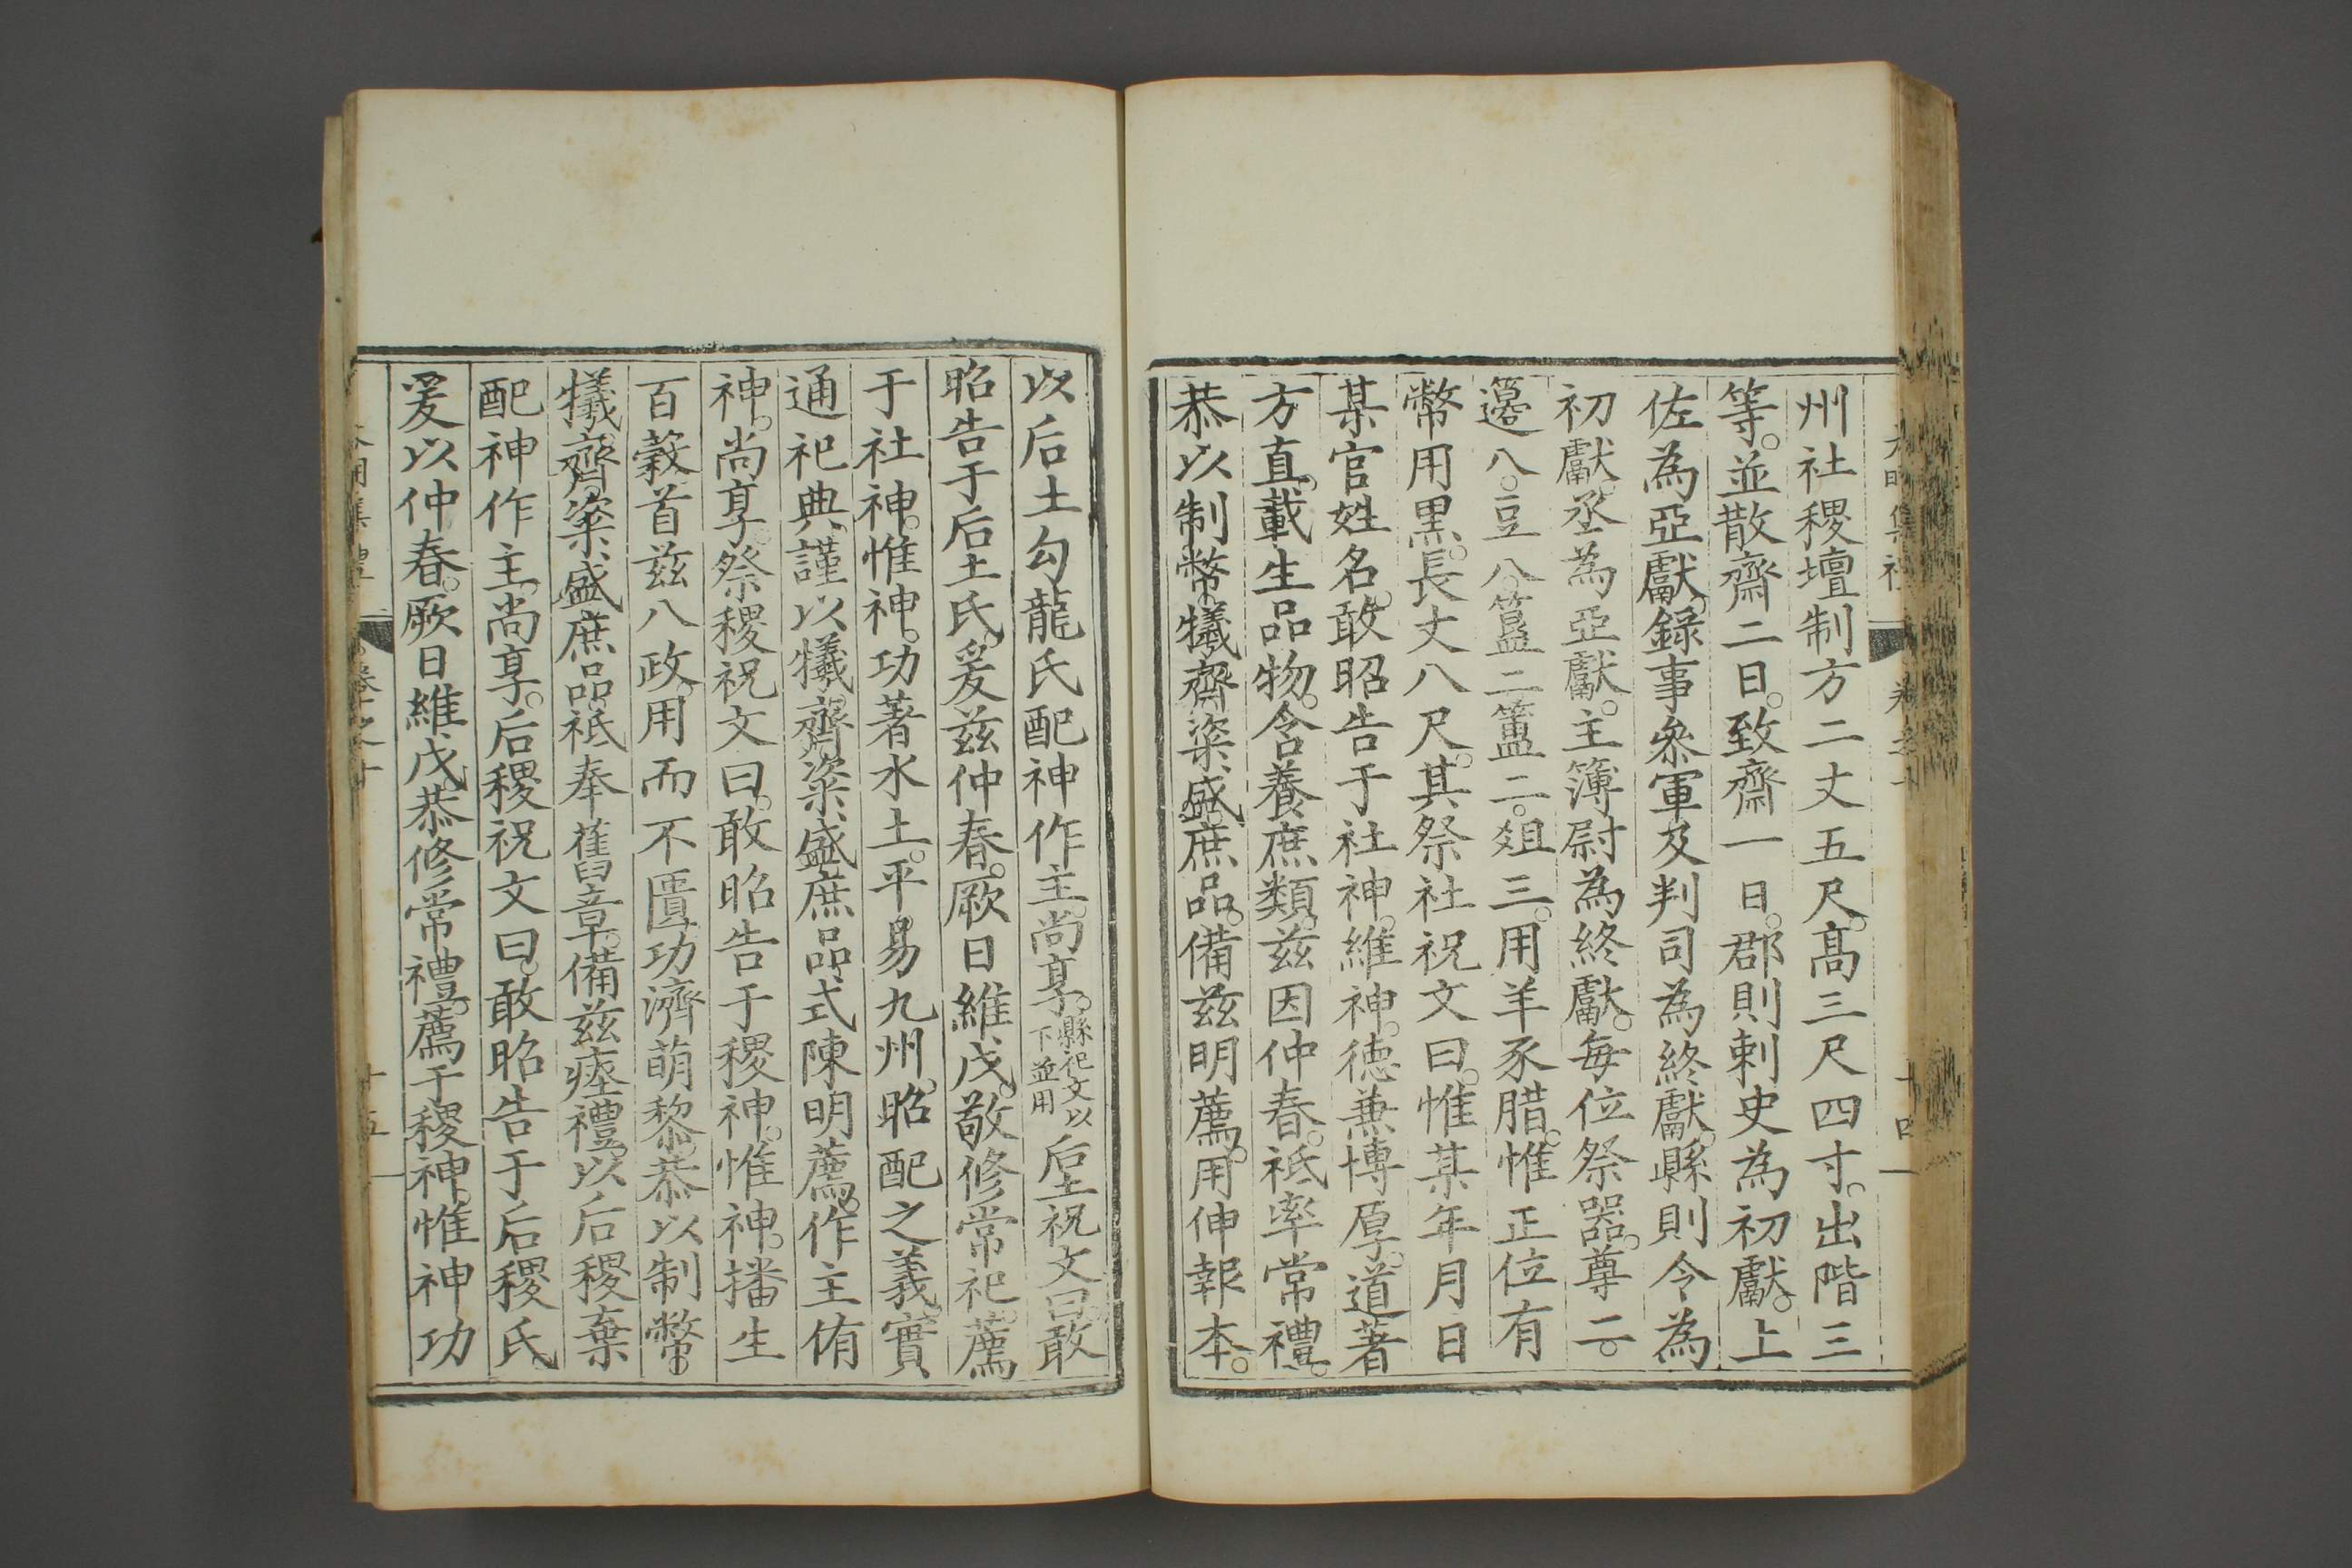 州社稷壇制方二丈五尺。高三尺四寸。出階三
等。並散齋二日。致齋一日。郡則刺史為初獻。上
佐為亞獻。錄事參軍及判司為終獻。縣則令為
初獻。丞為亞獻。主簿尉為終獻。每位祭器。尊二。
籩八。豆八。簋二簠二。俎三。用羊豕腊。惟正位有
幣用黑。長丈八尺。其祭社祝文曰。惟某年月日
某官姓名。敢昭告于社神。維神。德兼博厚。道著
方直。載生品物。含養庶類。茲因仲春。祗率常禮。
恭以制幣。犧齊粢盛。庶品。備茲明薦。用伸報本。
以后土勾龍氏配神作主。尚享。縣祀文以下並用后土祝文曰。敢
昭告于后土氏。爰茲仲春。厥日維戊。敬修常祀。薦
于社神。惟神。功著水土。平易九州。昭配之義。實
通祀典。謹以犧。齊粢盛庶品。式陳明薦。作主侑
神。尚享。祭稷祝文曰。敢昭告于稷神。惟神。播生
百穀。首茲八政。用而不匱。功濟萌黎。恭以制幣。
犧齊。粢盛庶品。祗奉舊章。備茲瘞禮。以后稷棄
配神作主。尚享。后稷祝文曰。敢昭告于后稷氏
爰以仲春。厥日維戊。恭修常禮。薦于稷神。惟神功